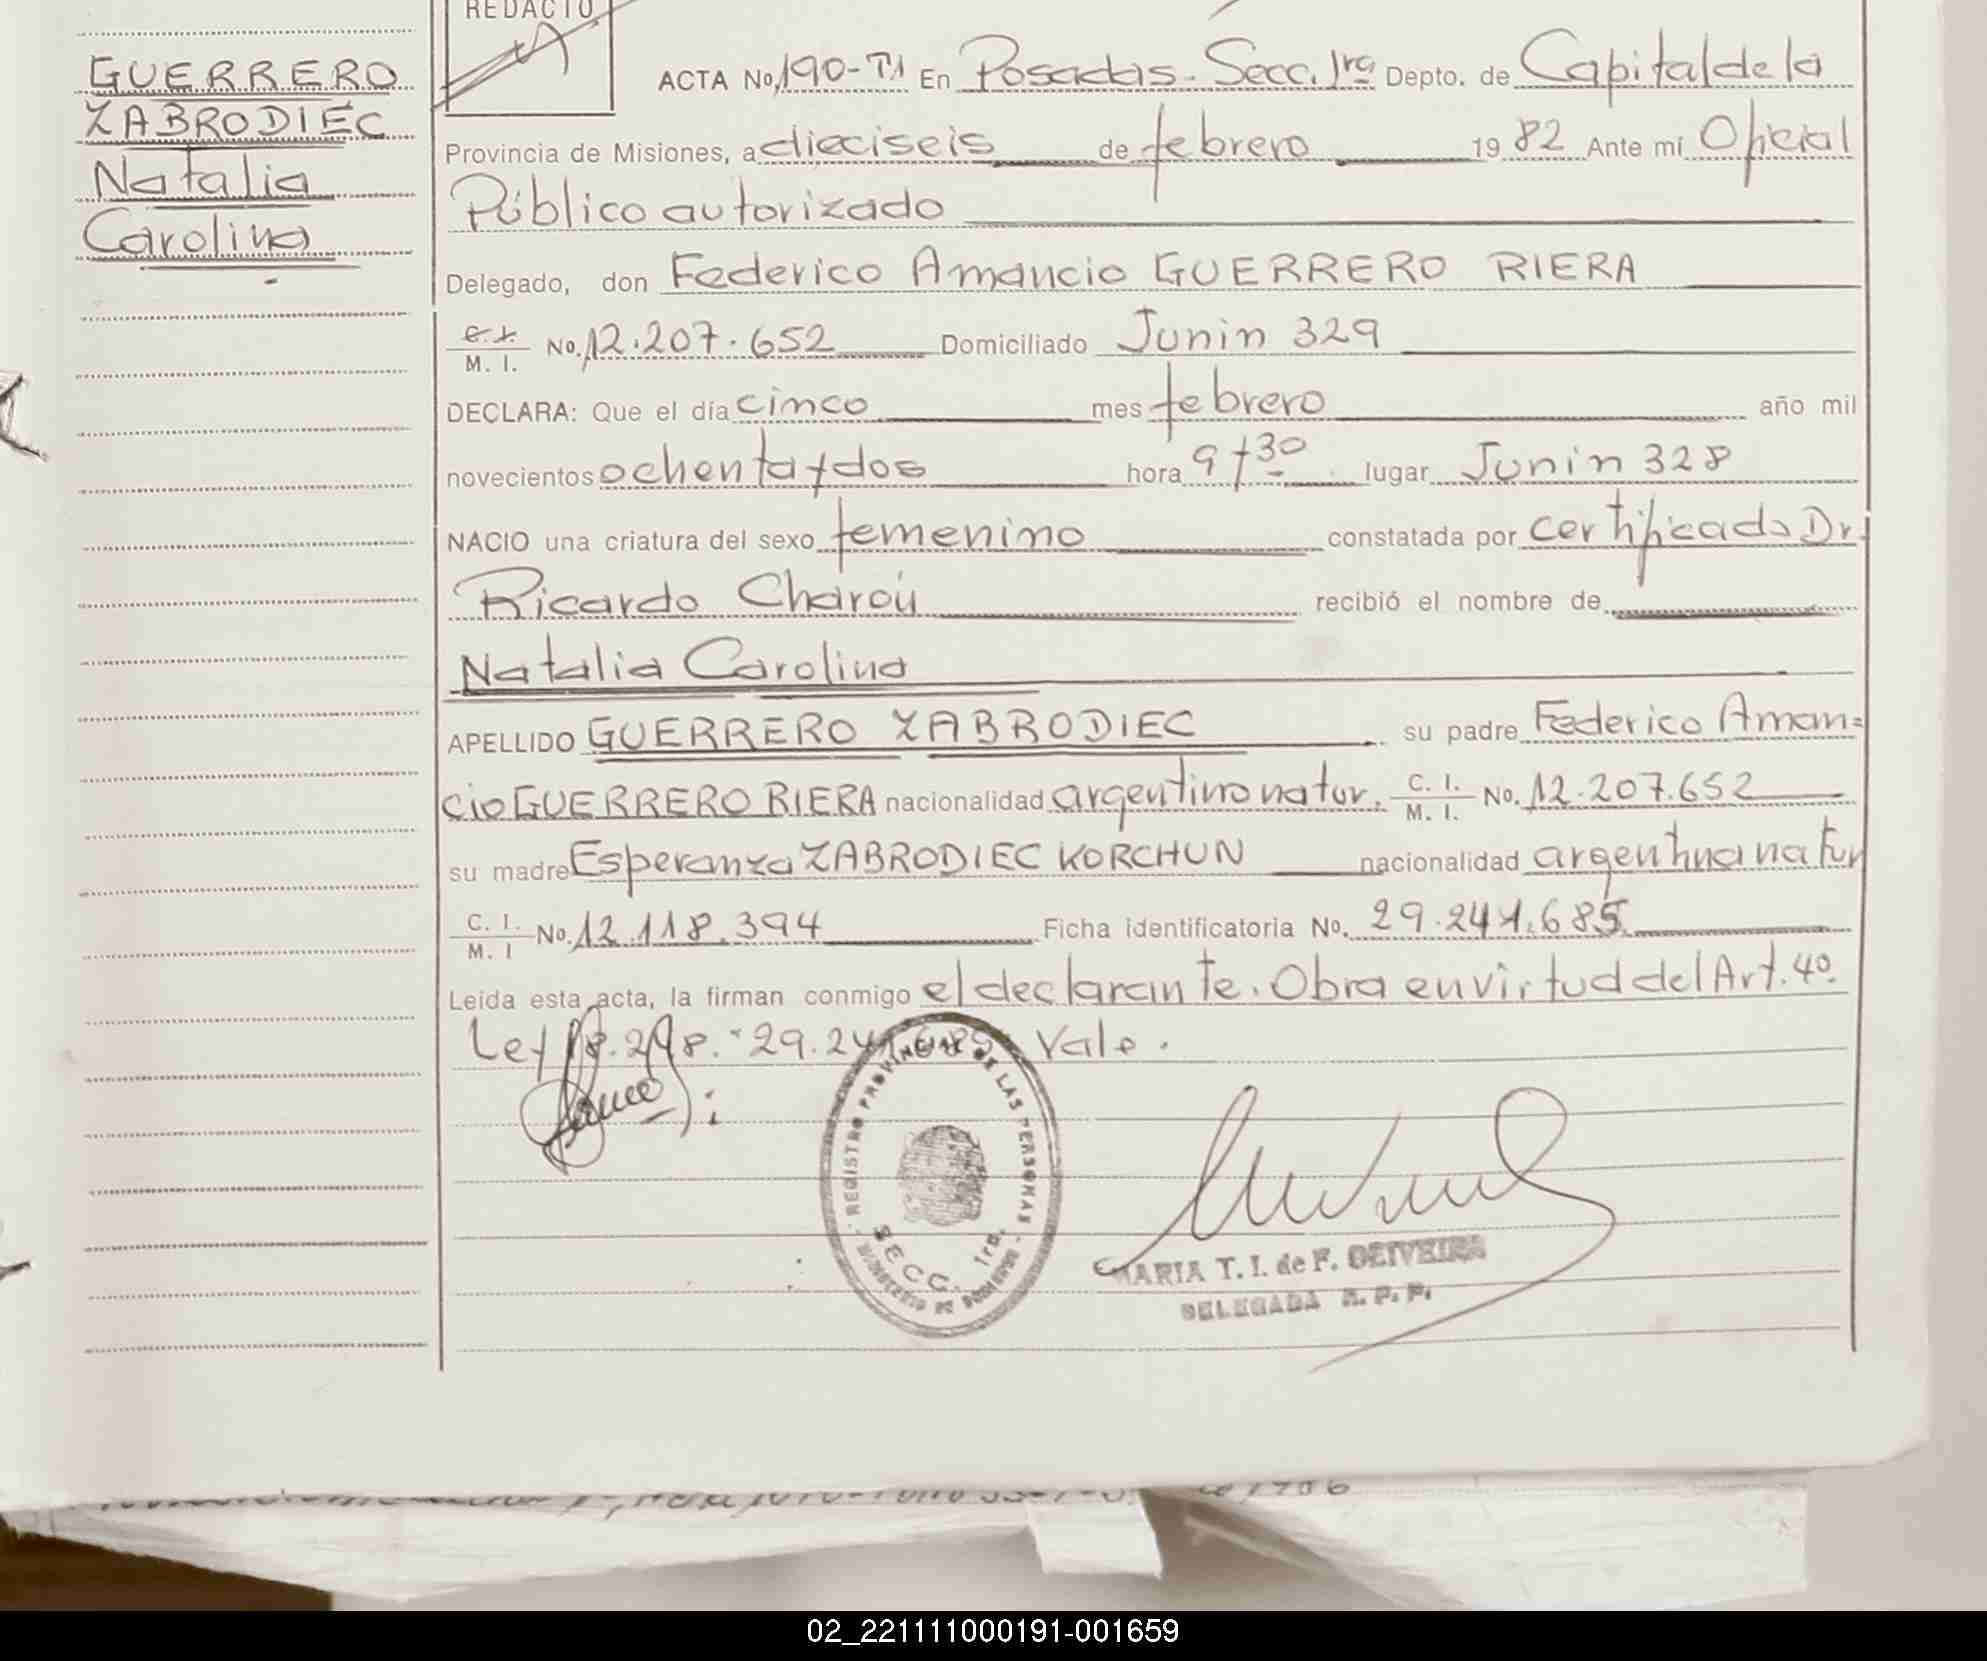 REDACTO
GUERRERO
ZABRODIEC
Natalia
Carolina
ACTA No. 190-T1 En Posadas. Secc. 1ra Depto. de Capital de la
Provincia de Misiones, a dieciseis de febrero 1982 Ante mí Oficial
Público autorizado
Delegado, don Federico Amancio GUERRERO RIERA
C. I. M. I. No. 12.207.652 Domiciliado Junin 329
DECLARA: Que el día cinco mes febrero año mil
novecientos ochenta y dos hora 9 y 30 lugar Junin 328
NACIO una criatura del sexo femenino constatada por certificado Dr.
Ricardo recibió el nombre de
Natalia Carolina
APELLIDO GUERRERO ZABRODIEC su padre Federico Aman=
cio GUERRERO RIERA nacionalidad argentino natur. C. I. M. I. No. 12.207.652
su madre Esperanza ZABRODIEC KORCHUN nacionalidad argentina natur
C. I. M. I No. 12.118.394 Ficha identificatoria No. 29.241.685
Leída esta acta, la firman conmigo el declarante. Obra en virtud del Art. 4º
Ley 18.248. 29.241.685 Vale.
REGISTRO PROVINCIAL DE LAS PERSONAS
SECC. 1ra.
MINISTERIO DE GOBIERNO
MARIA T. I. de F. OLIVEIRA
DELEGADA R. P. P.
02_221111000191-001659